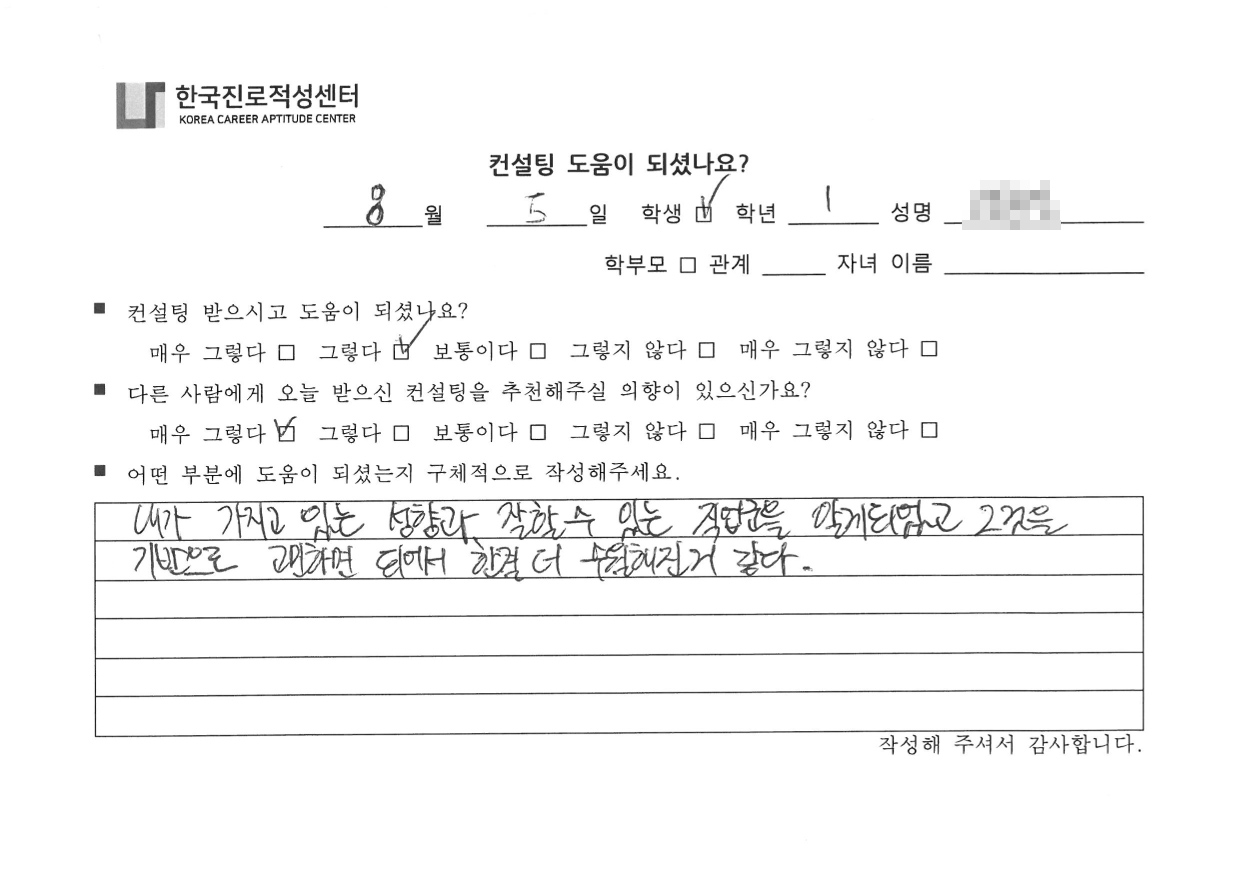 한국진로적성센터
KOREA CAREER APTITUDE CENTER
컨설팅 도움이 되셨나요?
8 월 5 일 학생 ☑ 학년 1 성명
학부모 □ 관계 자녀 이름
■ 컨설팅 받으시고 도움이 되셨나요?
매우 그렇다 □ 그렇다 ☑ 보통이다 □ 그렇지 않다 □ 매우 그렇지 않다 □
■ 다른 사람에게 오늘 받으신 컨설팅을 추천해주실 의향이 있으신가요?
매우 그렇다 ☑ 그렇다 □ 보통이다 □ 그렇지 않다 □ 매우 그렇지 않다 □
■ 어떤 부분에 도움이 되셨는지 구체적으로 작성해주세요.
내가 가지고 있는 성향과, 잘할 수 있는 직업군을 알게되었고 그것을
기반으로 고민하면 되어서 한결 더 수월해진 거 같다.
작성해 주셔서 감사합니다.